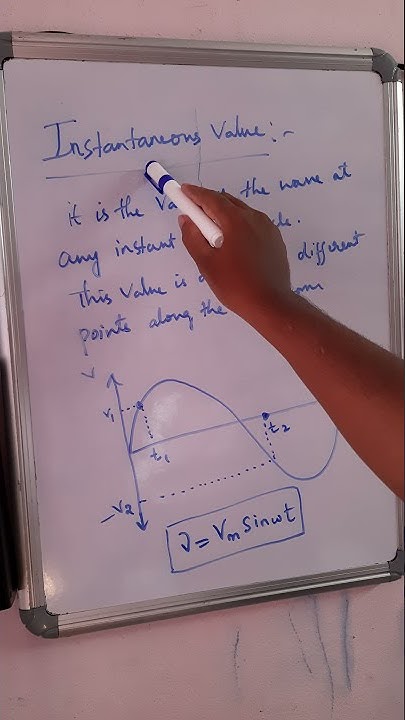 Instantaneous Value:-
it is the the wave at
any instant
This value is different
points along the
V
V1
t1
t2
-V2
v = Vm sinωt